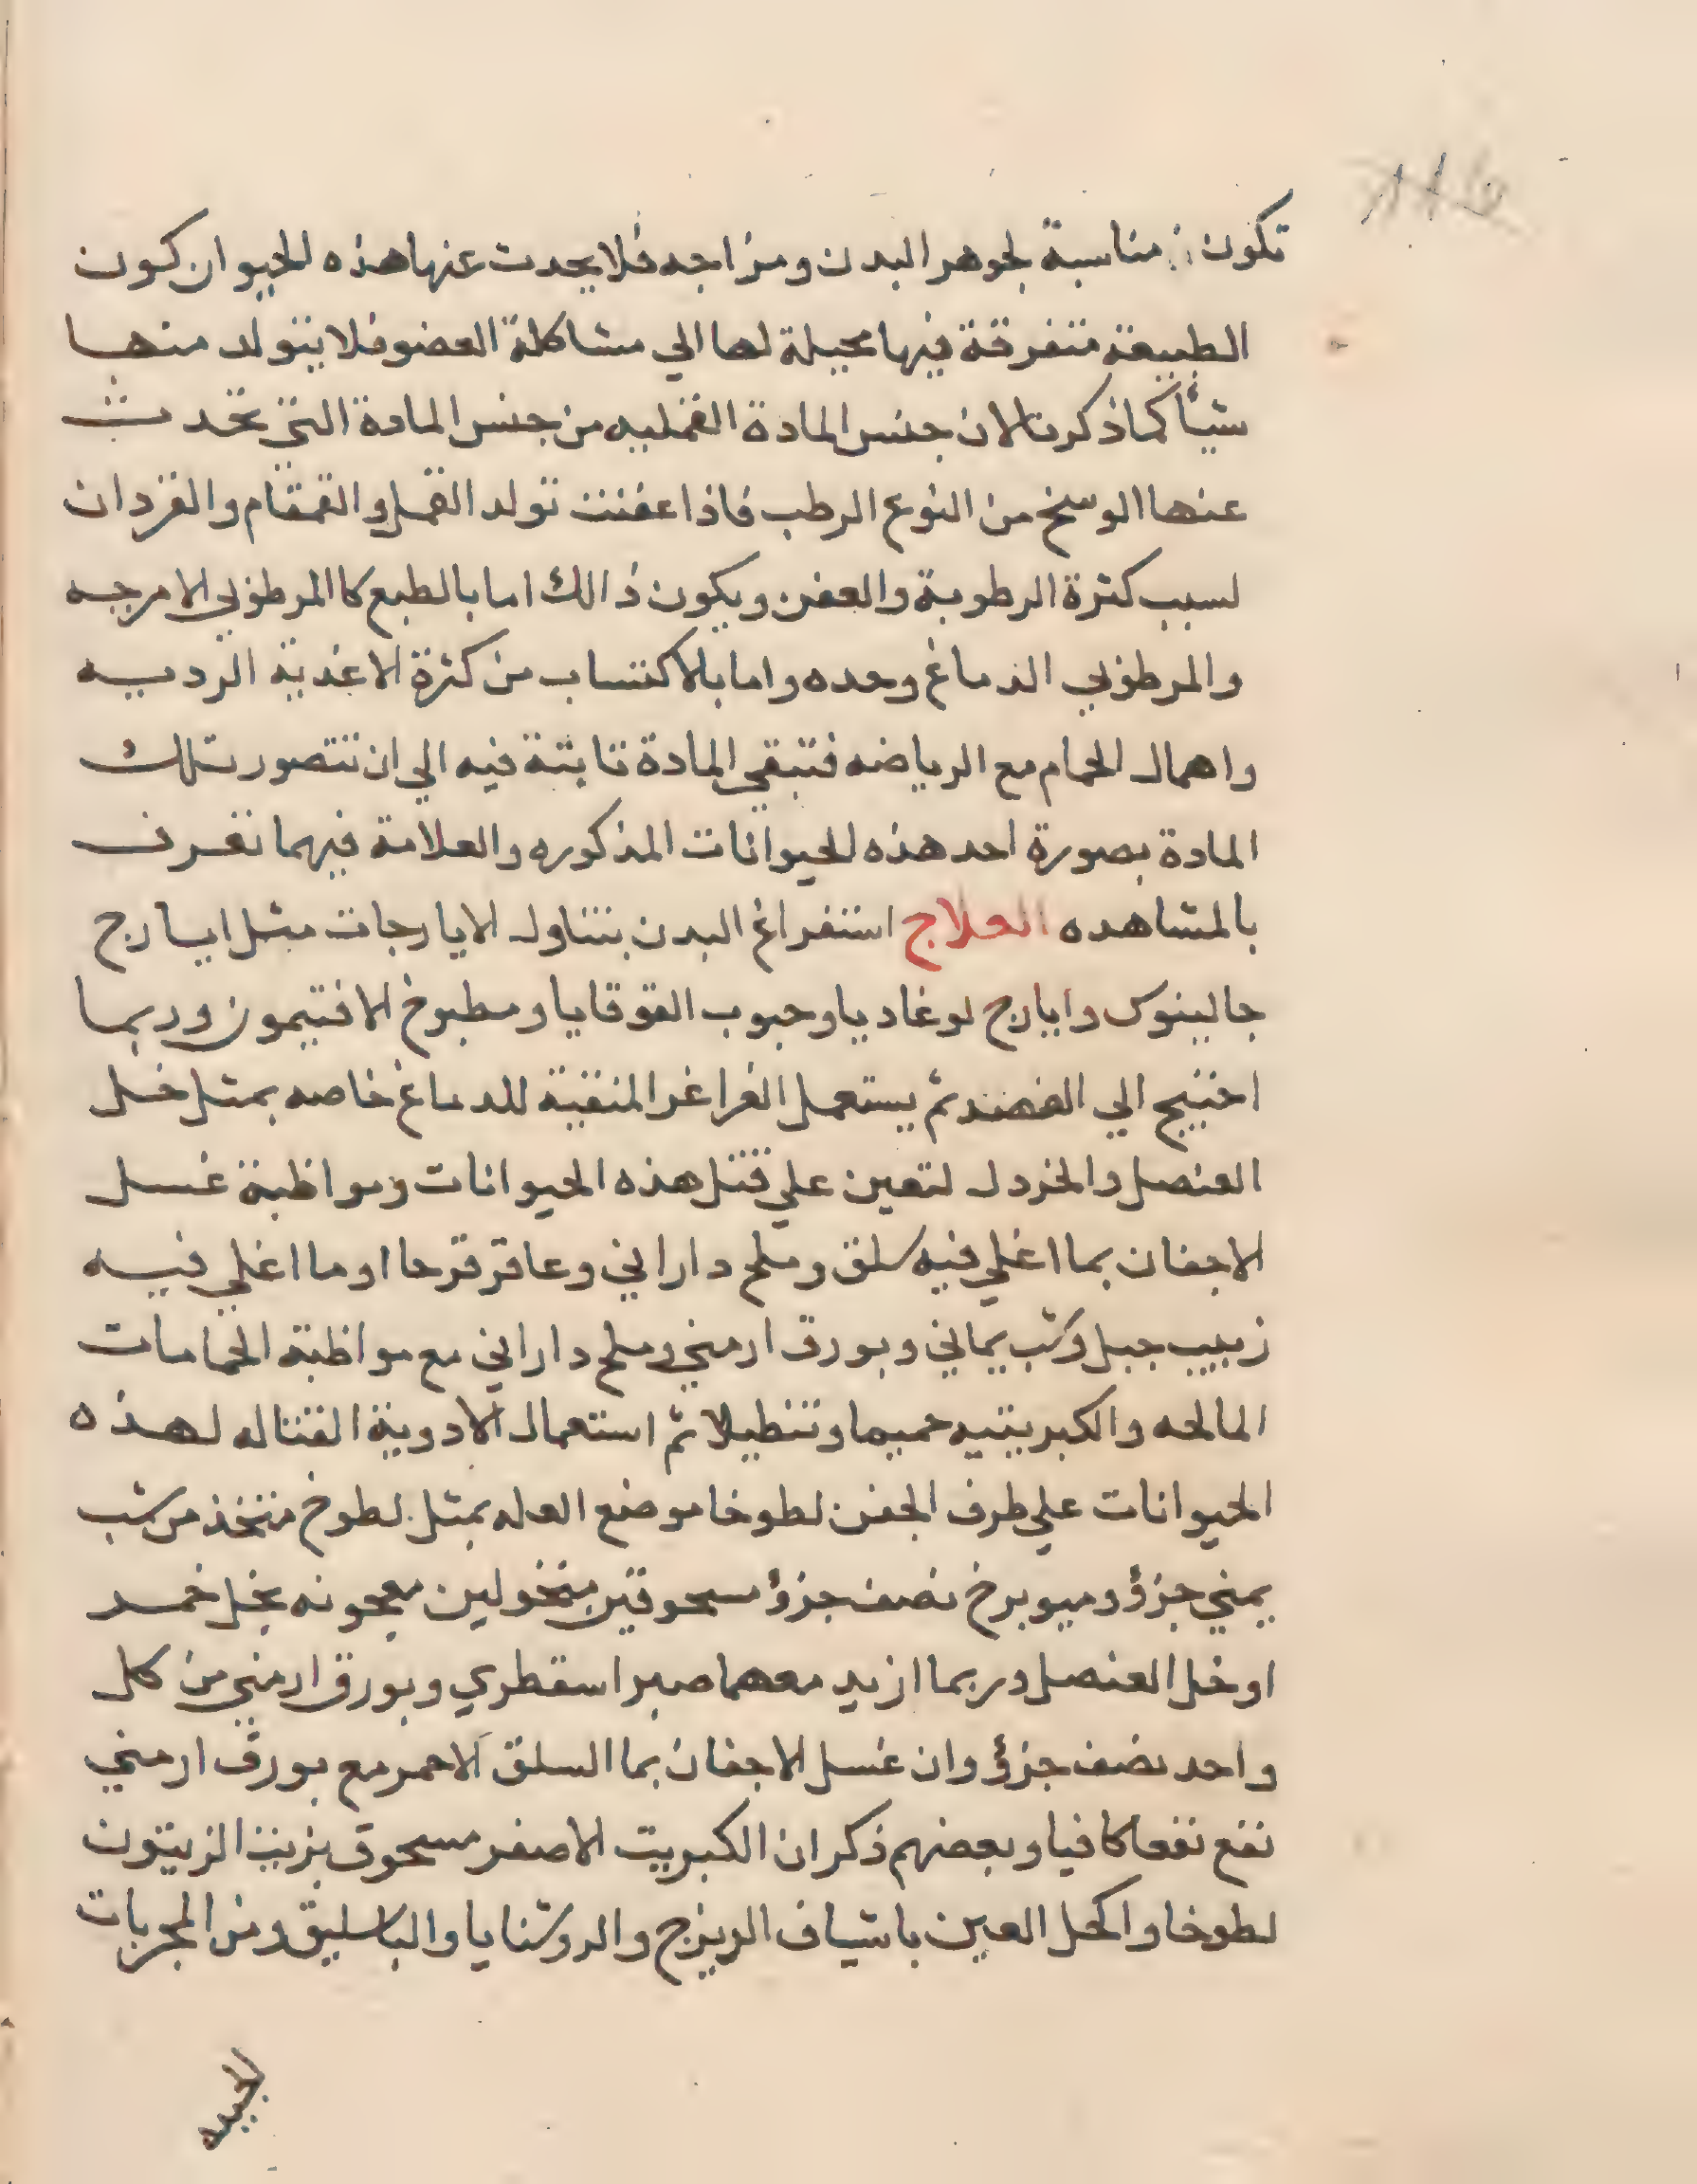 تكون مناسبة لجوهر البدن ومزاجه فلا يحدت عنها هذه الحيوان كون
الطبيعة متفرقة فيها محيلة لها الي مشاكلة العضو فلا يتولد منها
شيأ كما ذكرنا لان جنس المادة القمليه من جنس المادة التي تحدث
عنها الوسخ من النوع الرطب فاذا عفنت تولد القمل والقمقام والقردان
لسبب كثرة الرطوبة والعفن ويكون ذالك اما بالطبع كا المرطوبي الامرجه
والمرطوبي الدماغ وحده واما بالاكتساب من كثرة الاغذية الرديه
واهمال الحمام مع الرياضه فتبقي المادة ثابتة فيه الي ان تتصور تلك
المادة بصورة احد هذه الحيوانات المذكوره والعلامة فيهما تعرف
بالمشاهده العلاج استفراغ البدن بتناول الايارجات مثل ايارج
جالينوس وايارج لوغاديا وحبوب القوقايا ومطبوخ الافتيمون وربما
احتيج الي الفصد ثم يستعمل الغراغر المنقية للدماغ خاصه بمثل خل
العنصل والخردل لتعين علي قتل هذه الحيوانات ومواظبة غسل
الاجفان بما اغلي فيه سلق وملح داراني وعاقر قرحا او ما اغلي فيه
زبيب جبل وشب يماني وبورق ارمني وملح داراني مع مواظبة الحمامات
المالحه والكبريتيه حميما وتنطيلا ثم استعمال الادوية القتاله لهذه
الحيوانات علي طرف الجفن لطوخا موضع العله بمثل لطوخ متخذ من شب
يمني جزؤ وميوبزخ نصف جزؤ مسحوقين منخولين معجونه بخل خمر
او خل العنصل وربما ازيد معهما صبر اسقطري وبورق ارمني من كل
واحد نصف جزؤ وان غسل الاجفان بما السلق الاحمر مع بورق ارمني
نفع نفعا كافيا وبعضهم ذكر ان الكبريت الاصفر مسحوق بزيت الزيتون
لطوخا واكحل العين باشياف الريزج والروشنايا والباسليق ومن المجربات